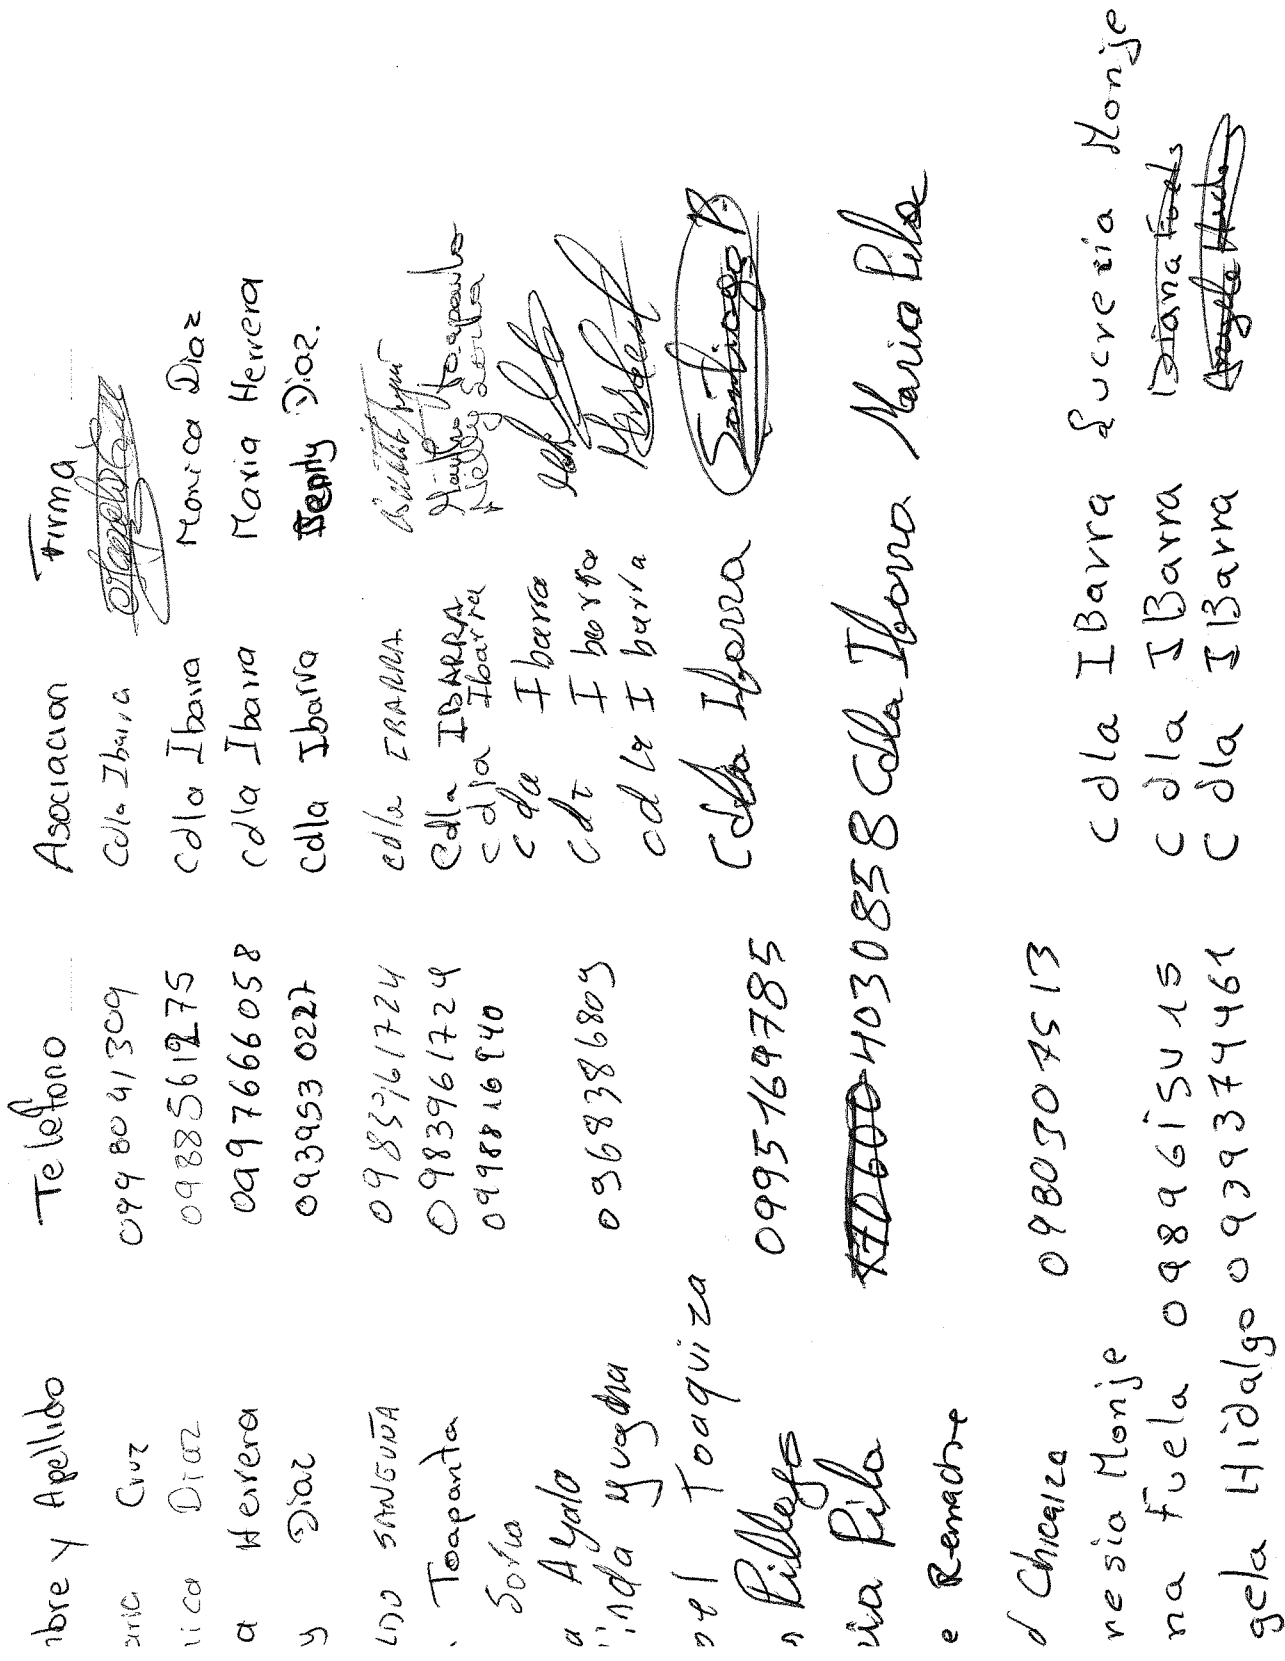 nbre y Apellido Telefono Asociacion Firma
aria Cruz 0998041309 Cdla Ibarra
nica Diaz 0988561275 Cdla Ibarra Monica Diaz
a Herrera 0997666058 Cdla Ibarra Maria Herrera
y Diaz 0939530227 Cdla Ibarra Jenny Diaz.
LDO SANGUÑA 0983961724 Cdla IBARRA
. Toapanta 0983961724 Cdla IBARRA Toapanta
Soria 0998816940 Cdla Ibarra Nelly Soria
a Ayala Cda Ibarra
inda Yugcha 0968386809 Ibarra
nel Toaquiza Ibarra
n Pillajo 0995169785 Cdla Ibarra Santiago P.
ria Pila 4030858 Cdla Ibarra Maria Pila
e Remache
d Chicaiza 0980307513
resia Monje Cdla IBarra Lucrecia Monje
na Fuela Cdla IBarra Diana
gela Hidalgo 0939374461 Cdla IBarra